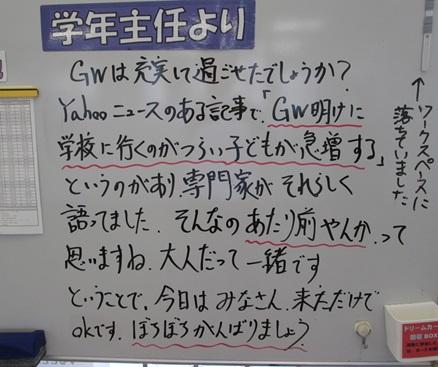 学年主任より
GWは充実して過ごせたでしょうか?
Yahooニュースのある記事で、「GW明けに
学校に行くのがつらい子どもが急増する」
というのがあり、専門家がそれらしく
語ってました。そんなのあたり前やんか、って
思いますね。大人だって一緒です
ということで、今日はみなさん、来ただけで
okです。ぼちぼちがんばりましょう
↑ワークスペースに
落ちていました
ドリームカー
回収BOX